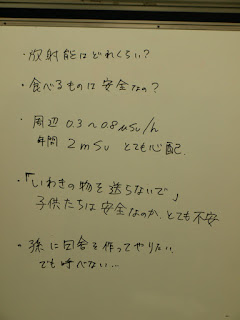 ・放射能はどれくらい?
・食べるものは安全なの?
・周辺 0.3〜0.8μSv/h
年間 2mSv とても心配.
・「いわきの物を送らないで」
子供たちは安全なのか、とても不安
・孫に田舎を作ってやりたい
でも呼べない…